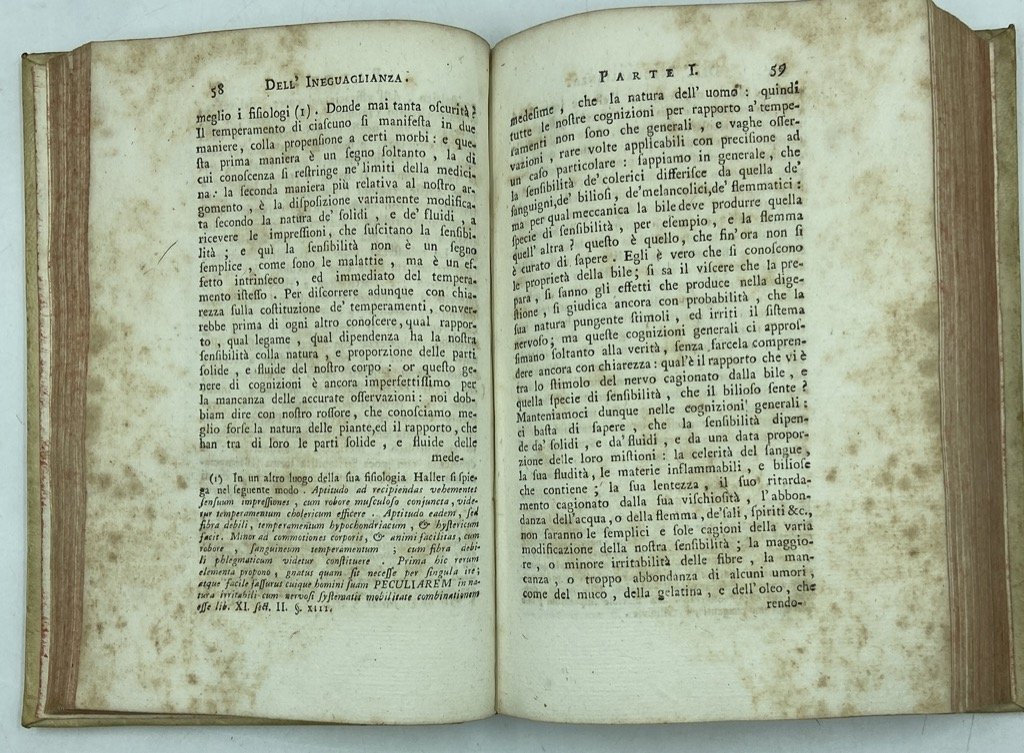 58 DELL' INEGUAGLIANZA.
meglio i fiſiologi (1). Donde mai tanta oſcurità?
Il temperamento di ciaſcuno ſi manifeſta in due
maniere, colla propenſione a certi morbi: e que-
ſta prima maniera è un ſegno ſoltanto, la di
cui conoſcenza ſi reſtringe ne' limiti della medici-
na: la ſeconda maniera più relativa al noſtro ar-
gomento, è la diſpoſizione variamente modifica-
ta ſecondo la natura de' ſolidi, e de' fluidi, a
ricevere le impreſſioni, che ſuſcitano la ſenſibi-
lità; e quì la ſenſibilità non è un ſegno
ſemplice, come ſono le malattie, ma è un ef-
fetto intrinſeco, ed immediato del tempera-
mento iſteſſo. Per diſcorrere adunque con chia-
rezza ſulla coſtituzione de' temperamenti, conver-
rebbe prima di ogni altro conoſcere, qual rappor-
to, qual legame, qual dipendenza ha la noſtra
ſenſibilità colla natura, e proporzione delle parti
ſolide, e fluide del noſtro corpo: or queſto ge-
nere di cognizioni è ancora imperfettiſſimo per
la mancanza delle accurate oſſervazioni: noi dob-
biam dire con noſtro roſſore, che conoſciamo me-
glio forſe la natura delle piante, ed il rapporto, che
han tra di loro le parti ſolide, e fluide delle
mede-
(1) In un altro luogo della ſua fiſiologia Haller ſi ſpie-
ga nel ſeguente modo. Aptitudo ad recipiendas vehementes
ſenſuum impreſſiones, cum robore muſculoſo conjuncta, vide-
tur temperamentum cholericum efficere. Aptitudo eadem, ſed
fibra debili, temperamentum hypochondriacum, & hyſtericum
facit. Minor ad commotiones corporis, & animi facilitas, cum
robore, ſanguineum temperamentum; cum fibra debi-
li phlegmaticum videtur conſtituere. Prima hic rerum
elementa propono, gnatus quam ſit neceſſe per ſingula ite;
atque facile faſſurus cuique homini ſuam PECULIAREM in na-
tura irritabili cum nervoſi ſyſtematis mobilitate combinationem
eſſe lib. XI. ſect. II. §. XIII.
PARTE I. 59
medeſime, che la natura dell' uomo: quindi
tutte le noſtre cognizioni per rapporto a' tempe-
ramenti non ſono che generali, e vaghe oſſer-
vazioni, rare volte applicabili con preciſione ad
un caſo particolare: ſappiamo in generale, che
la ſenſibilità de' colerici differiſce da quella de'
ſanguigni, de' bilioſi, de' melancolici, de' flemmatici:
ma per qual meccanica la bile deve produrre quella
ſpecie di ſenſibilità, per eſempio, e la flemma
quell' altra? queſto è quello, che fin'ora non ſi
è curato di ſapere. Egli è vero che ſi conoſcono
le proprietà della bile; ſi sa il viſcere che la pre-
para, ſi ſanno gli effetti che produce nella dige-
ſtione, ſi giudica ancora con probabilità, che la
ſua natura pungente ſtimoli, ed irriti il ſiſtema
nervoſo; ma queſte cognizioni generali ci approſ-
ſimano ſoltanto alla verità, ſenza farcela compren-
dere ancora con chiarezza: qual'è il rapporto che vi è
tra lo ſtimolo del nervo cagionato dalla bile, e
quella ſpecie di ſenſibilità, che il bilioſo ſente?
Manteniamoci dunque nelle cognizioni generali:
ci baſta di ſapere, che la ſenſibilità dipen-
de da' ſolidi, e da' fluidi, e da una data propor-
zione delle loro miſtioni: la celerità del ſangue,
la ſua fludità, le materie inflammabili, e bilioſe
che contiene; la ſua lentezza, il ſuo ritarda-
mento cagionato dalla ſua viſchioſità, l'abbon-
danza dell'acqua, o della flemma, de' ſali, ſpiriti &c.,
non ſaranno le ſemplici e ſole cagioni della varia
modificazione della noſtra ſenſibilità; la maggio-
re, o minore irritabilità delle fibre, la man-
canza, o troppo abbondanza di alcuni umori,
come del muco, della gelatina, e dell'oleo, che
rendo-